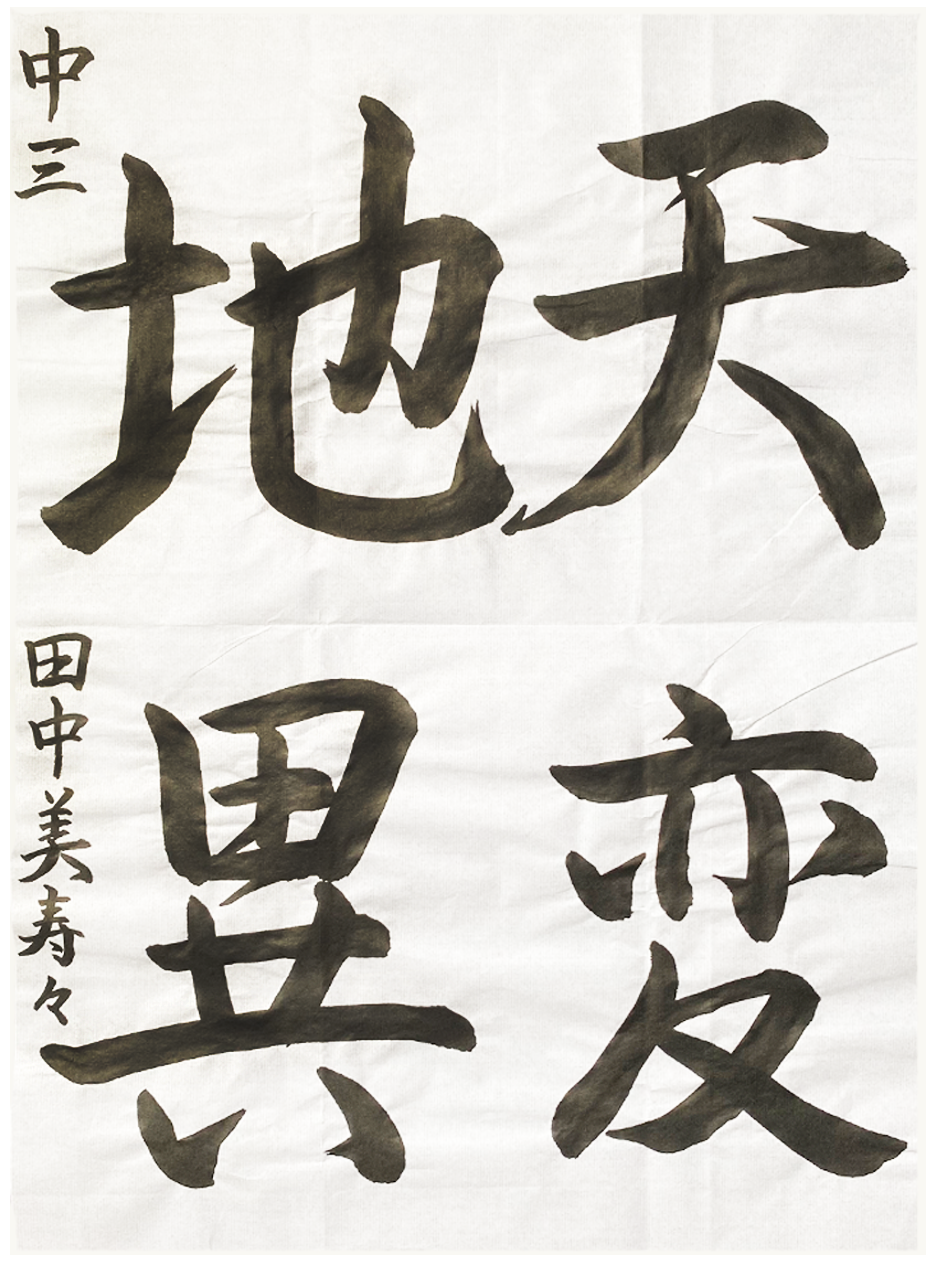 天変
地異
中三 田中美寿々